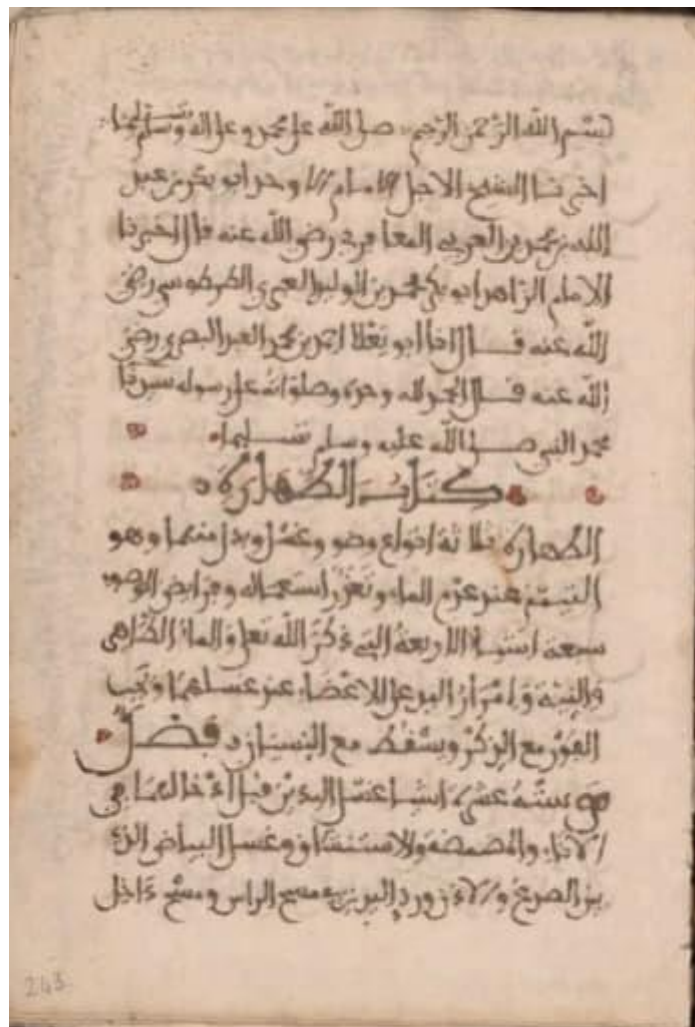 بسم الله الرحمن الرحيم صلى الله على محمد وعلى اله وسلم تسليما
اخبرنا الشيخ الاجل الامام الاوحد ابو بكر بن عبد
الله بن محمد بن العربي المعافري رضي الله عنه قال اخبرنا
الامام الزاهد ابو بكر محمد بن الوليد الفهري الطرطوشي رضي
الله عنه قال انا ابو يعلا احمد بن محمد العبدي البصري رضي
الله عنه قال الحمد لله وحده وصلواته على رسوله سيدنا
محمد النبي صلى الله عليه وسلم تسليما
كتاب الطهارة
الطهارة ثلاثة انواع وضو وغسل وبدل منهما وهو
التيمم عند عدم الماء وتعذر استعماله وفرايض الوضوء
سبعة اشياء الاربعة التي ذكر الله تعلى والماء الطاهر
والنية وإمرار اليد على الاعضاء عند غسلها ويجب
الفور مع الذكر ويسقط مع النسيان فصل
ستة عشر اشياء غسل اليدين قبل ادخالهما في
الاناء والمضمضة والاستنشاق وغسل البياض الذي
بين الصدغ والاذن ورد اليدين في مسح الراس ومسح داخل
243